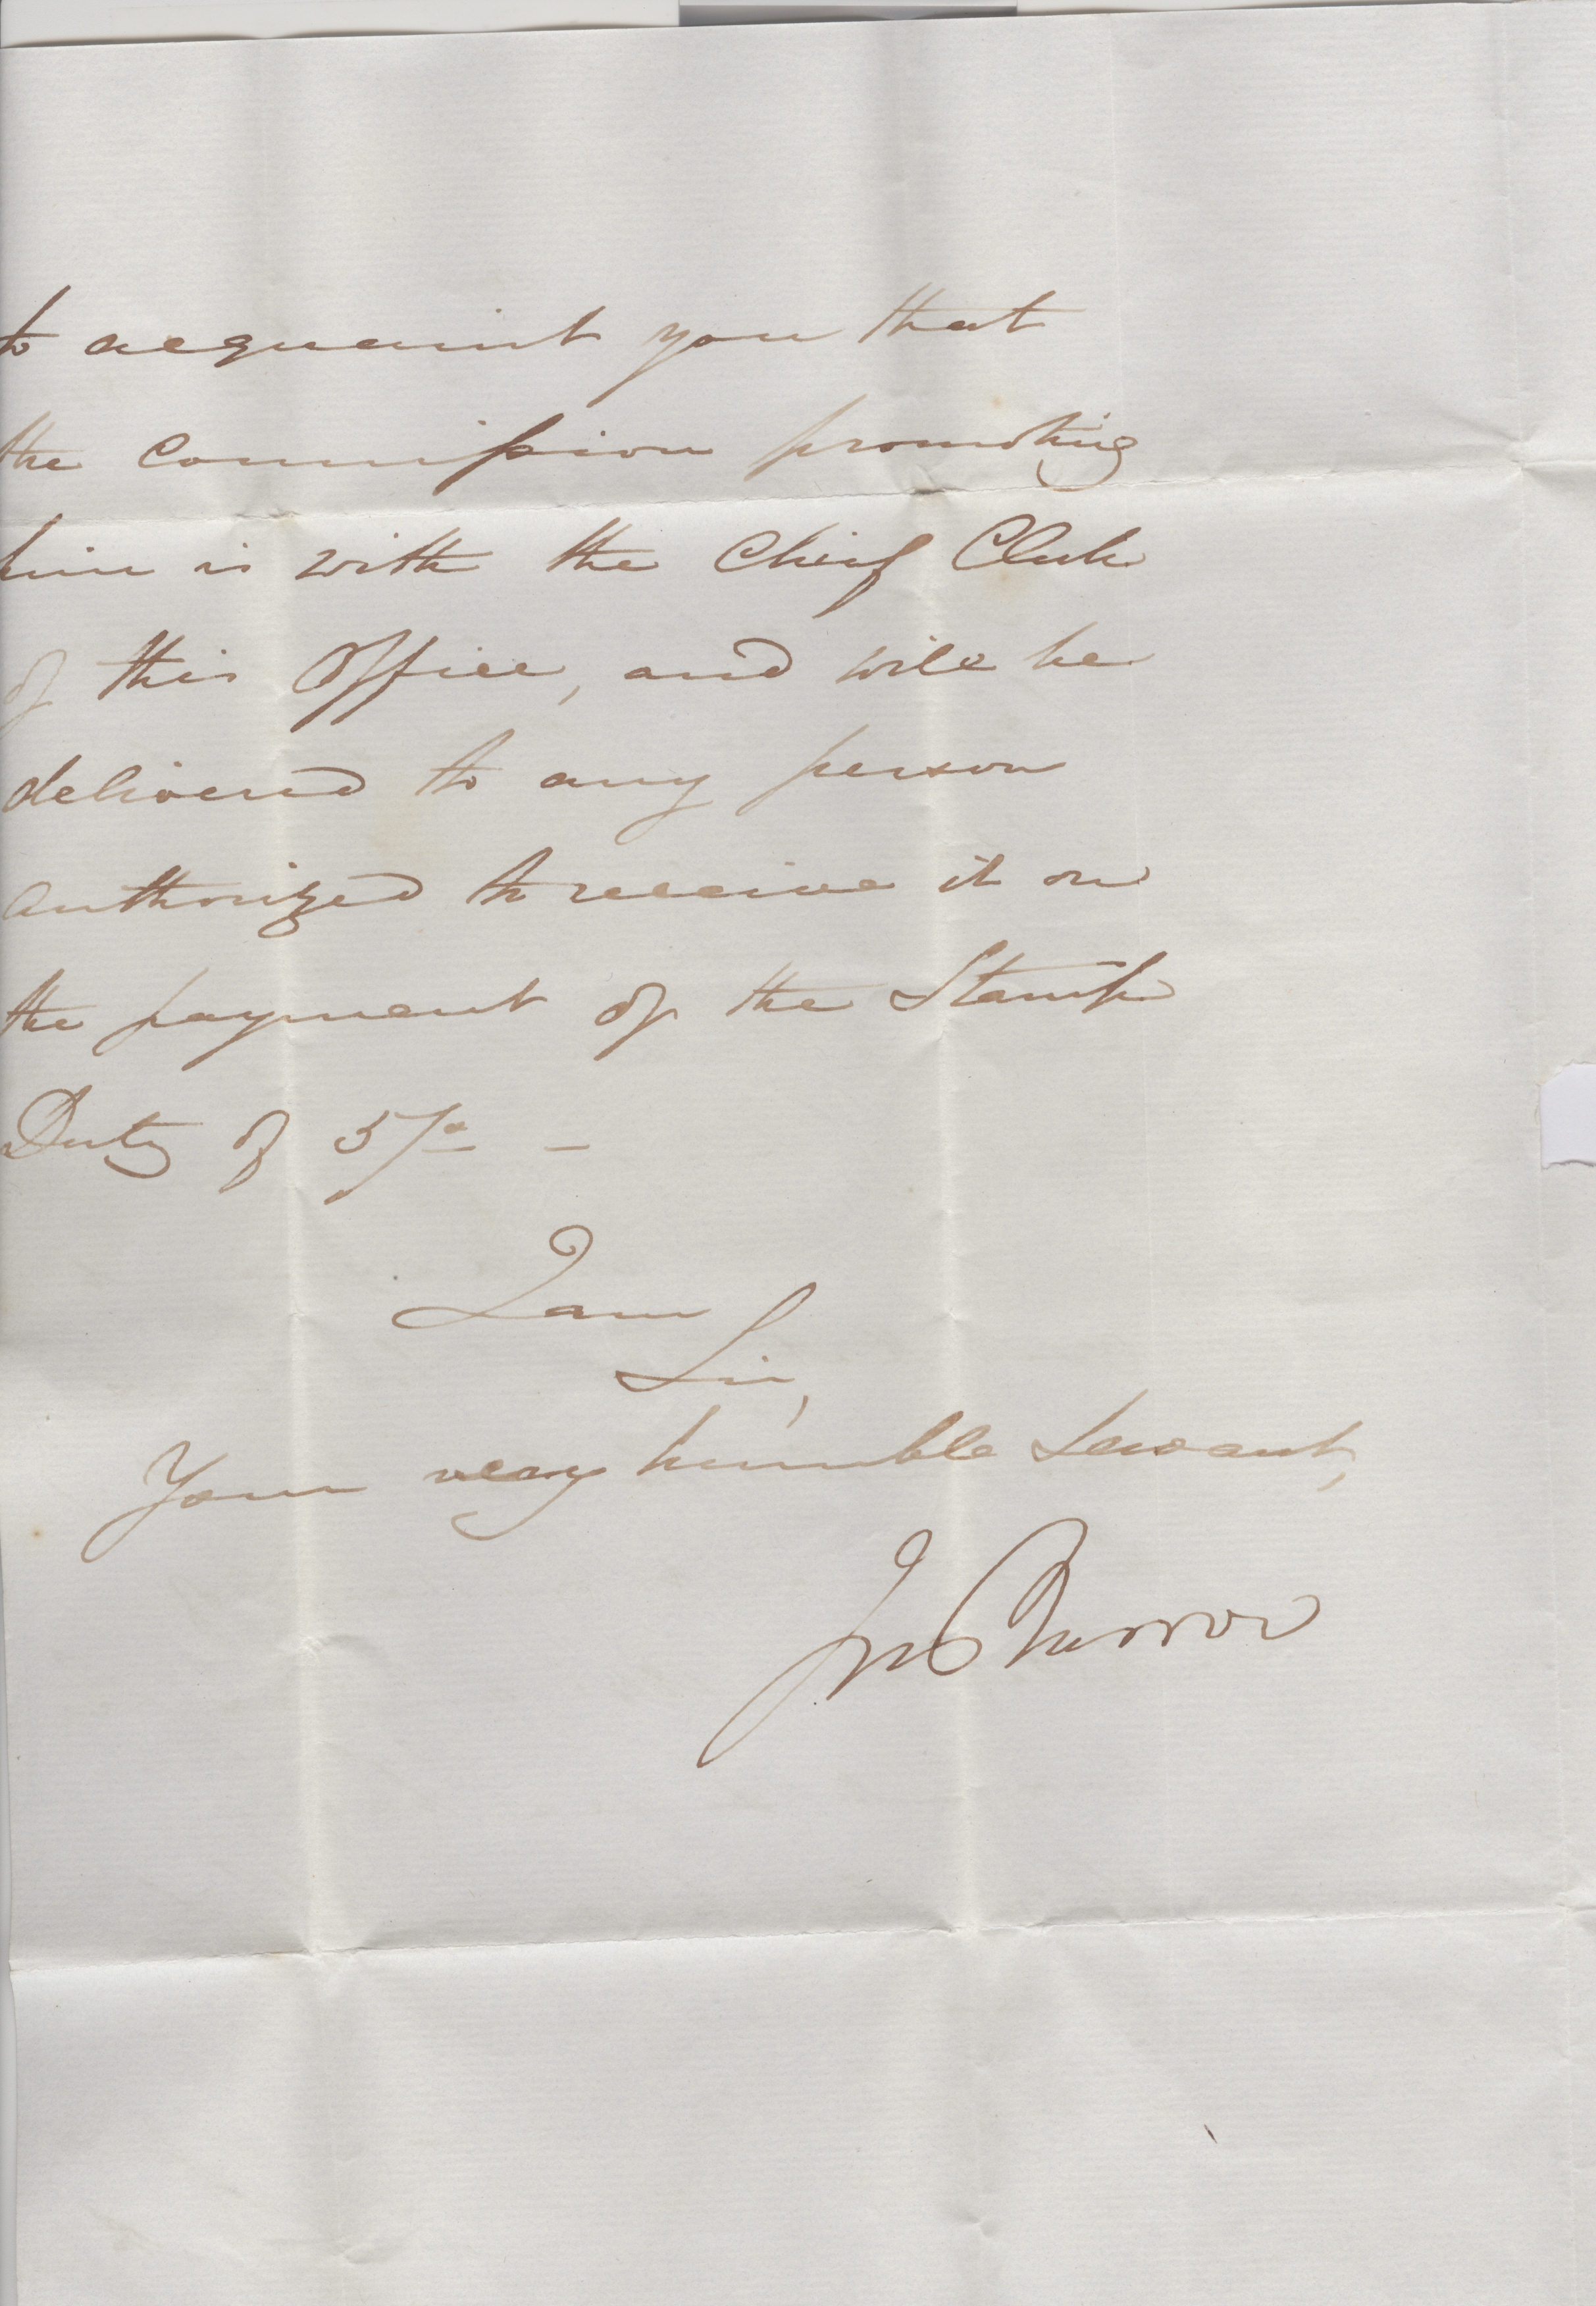 to acquaint you that
the Commission promoting
him is with the Chief Clerk
of this Office, and will be
delivered to any person
authorized to receive it on
the payment of the Stamp
Duty of 5/-
I am
Sir,
Your very humble Servant,
Jno Barrow